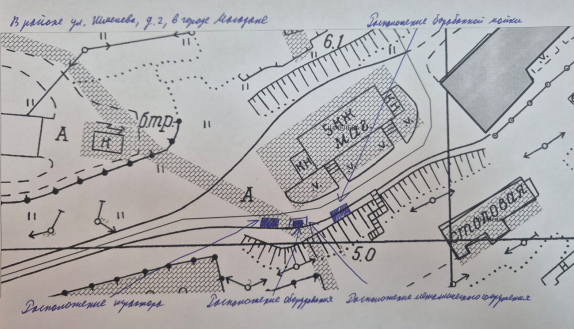 В районе ул. Шмелева, д. 2, в городе Магадане
Расположение барабанной мойки
6.1
КН
5КЖ
маг.
КН
V.
V.
V.
V.
А
бтр.
Н
А
столовая
5.0
Расположение трактора
Расположение оборудования
Расположение металлического сооружения